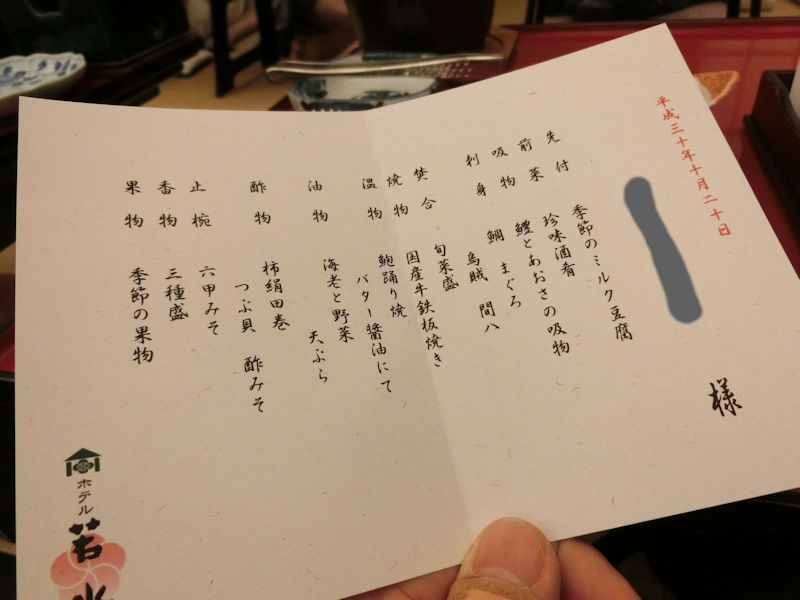 平成三十年十月二十日
様
先付 季節のミルク豆腐
前菜 珍味酒肴
吸物 鱧とあおさの吸物
刺身 鯛 まぐろ
烏賊 間八
焚合 旬菜盛
焼物 国産牛鉄板焼き
温物 鮑踊り焼
バター醤油にて
油物 海老と野菜
天ぷら
酢物 柿絹田巻
つぶ貝 酢みそ
止椀 六甲みそ
香物 三種盛
果物 季節の果物
ホテル
若水